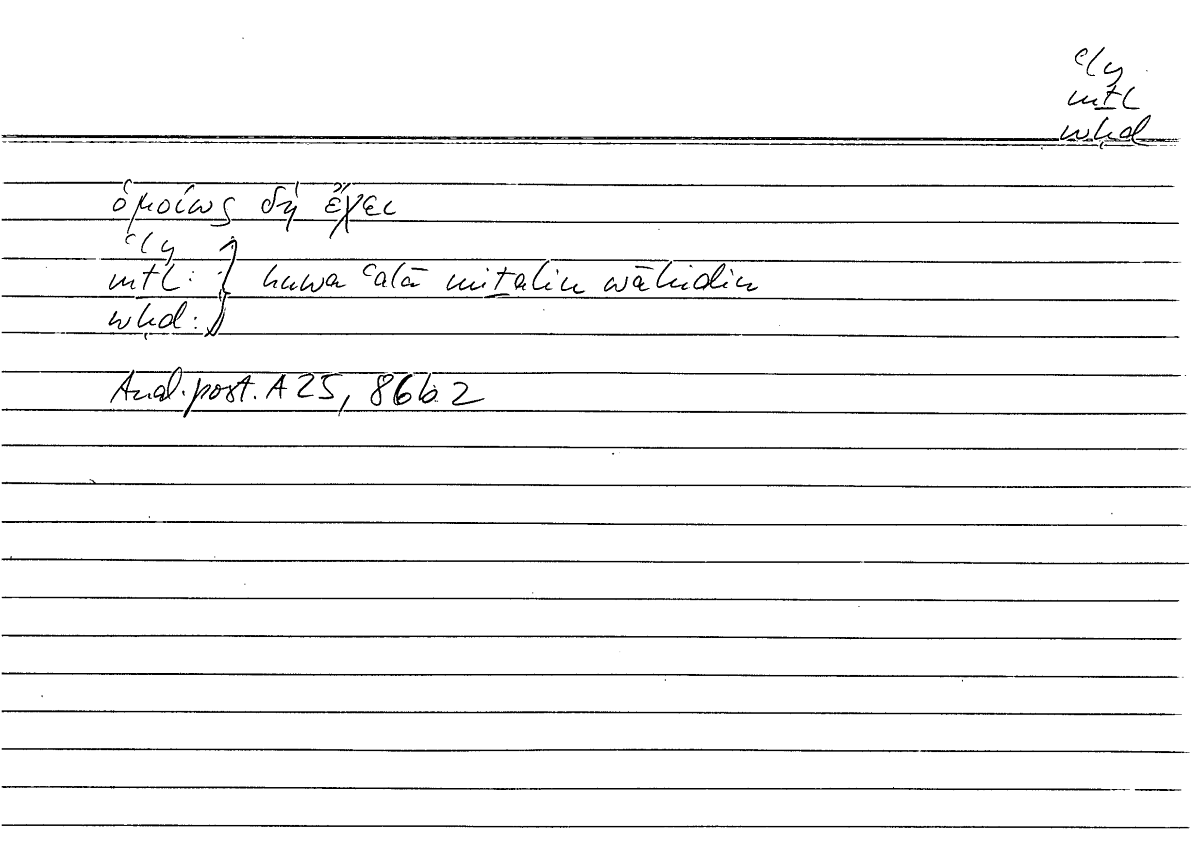 ʿly
mṯl
wḥd
ὁμοίως δὴ ἔχει
ʿly
mṯl: } huwa ʿalā miṯālin wāḥidin
wḥd:
Anal. post. A 25, 86b 2